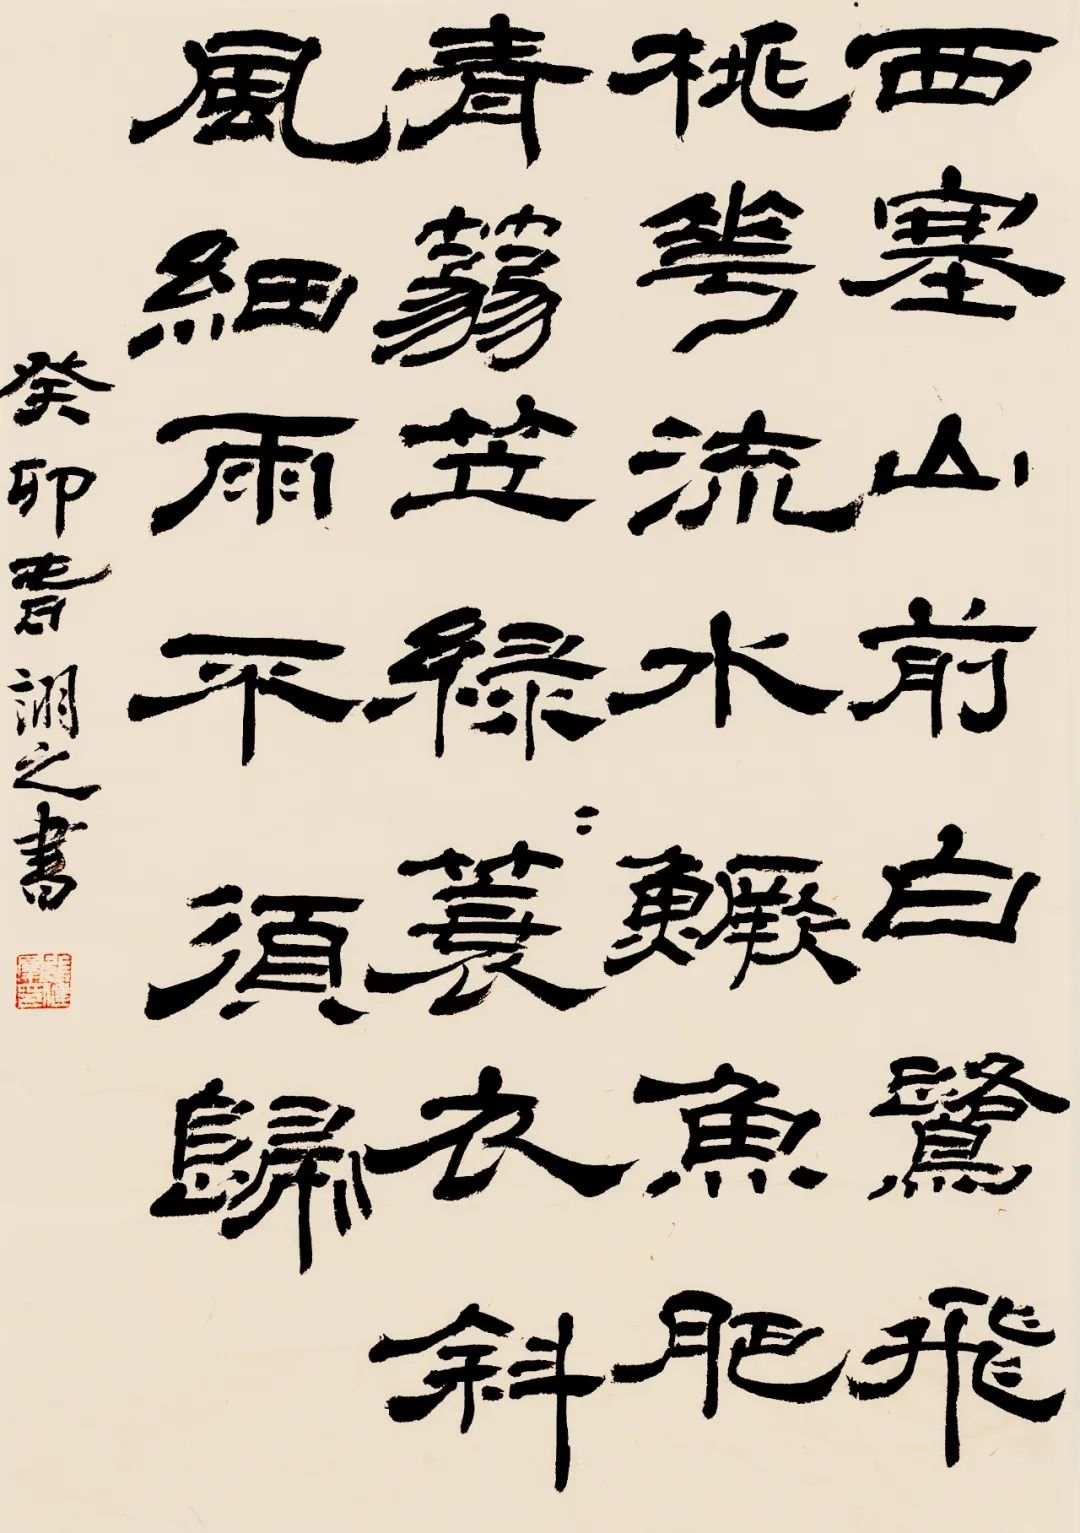 西塞山前白鷺飛
桃華流水鱖魚肥
青蒻笠綠蓑衣斜
風細雨不須歸
癸卯春詡之書